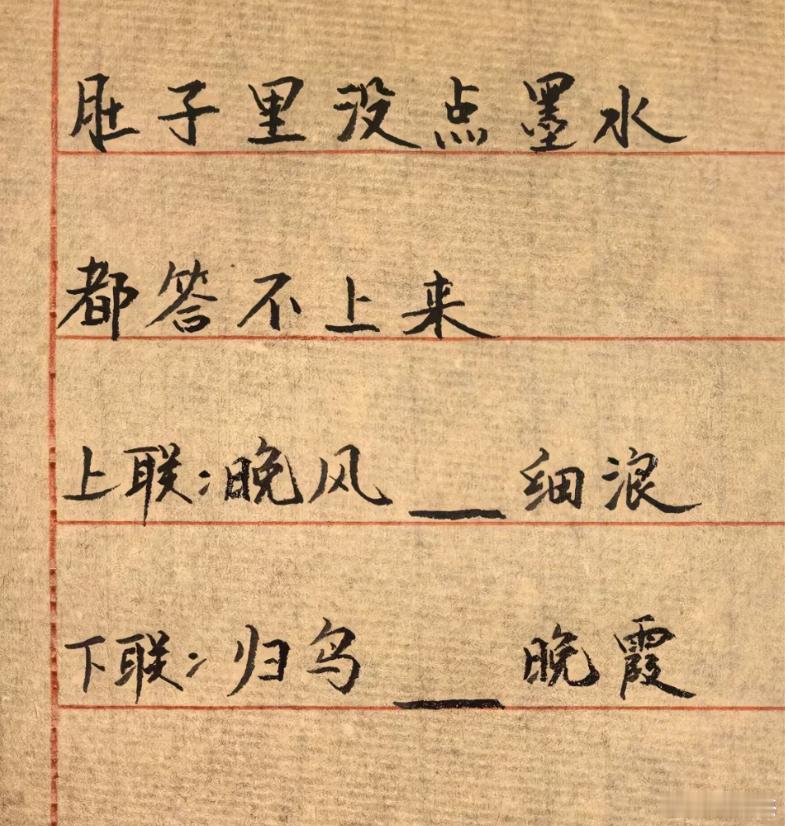 肚子里没点墨水
都答不上来
上联:晚风__细浪
下联:归鸟__晚霞